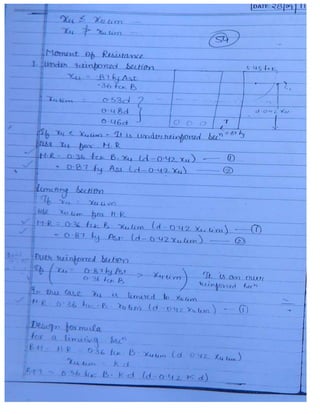 DATE: 28/01/11
xu ≤ xulim
xu ≯ xulim
54
Moment of Resistance
1. Under reinforced Section
xu = 0.87 fy Ast
.36 fck B
xulim = 0.53d
0.48d
0.46d
0.42 xu
T
If xu < xulim - It is under reinforced secn
use xu for M.R
M.R = 0.36 fck B. xu (d - 0.42 xu) — ①
= 0.87 fy Ast (d - 0.42 xu) — ②
Limiting Section
If xu = xulim
use xulim for M.R
M.R = 0.36 fck B. xulim (d - 0.42 xulim) — ①
= 0.87 fy Ast (d - 0.42 xulim) — ②
Over reinforced Section
If ( xu = 0.87 fy Ast > xulim ) It is an over
0.36 fck B reinforced secn
In this case xu is limited to xulim
M.R = 0.36 fck B xulim (d - 0.42 xulim) — ①
Design formula
for a limiting secn
BM = MR = 0.36 fck B xulim (d - 0.42 xulim)
xulim = kd
BM = 0.36 fck B. Kd (d - 0.42 Kd)